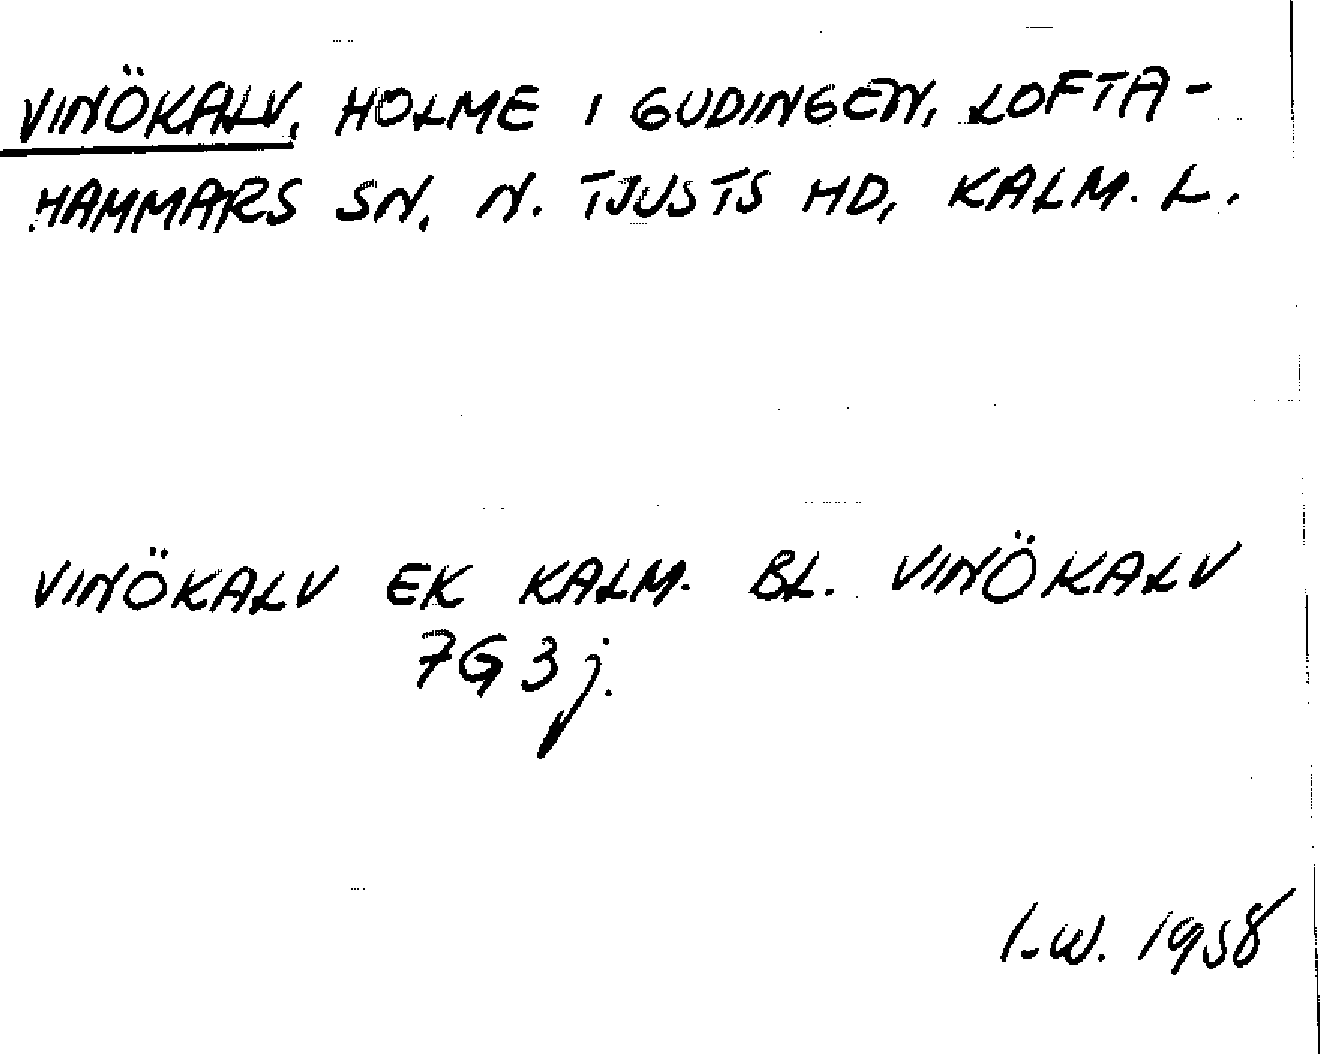 VINÖKALV, HOLME I GUDINGEN, LOFTA-
HAMMARS SN, N. TJUSTS HD, KALM. L.
VINÖKALV EK KALM. BL. VINÖKALV
7G3j.
I.W. 1958